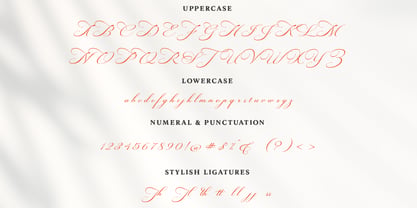 UPPERCASE
ABCDEFGHIJKLM
NOPQRSTUVWXYZ
LOWERCASE
abcdefghijklmnopqrstuvwxyz
NUMERAL & PUNCTUATION
1234567890!@#$%^& (?)<>
STYLISH LIGATURES
Th